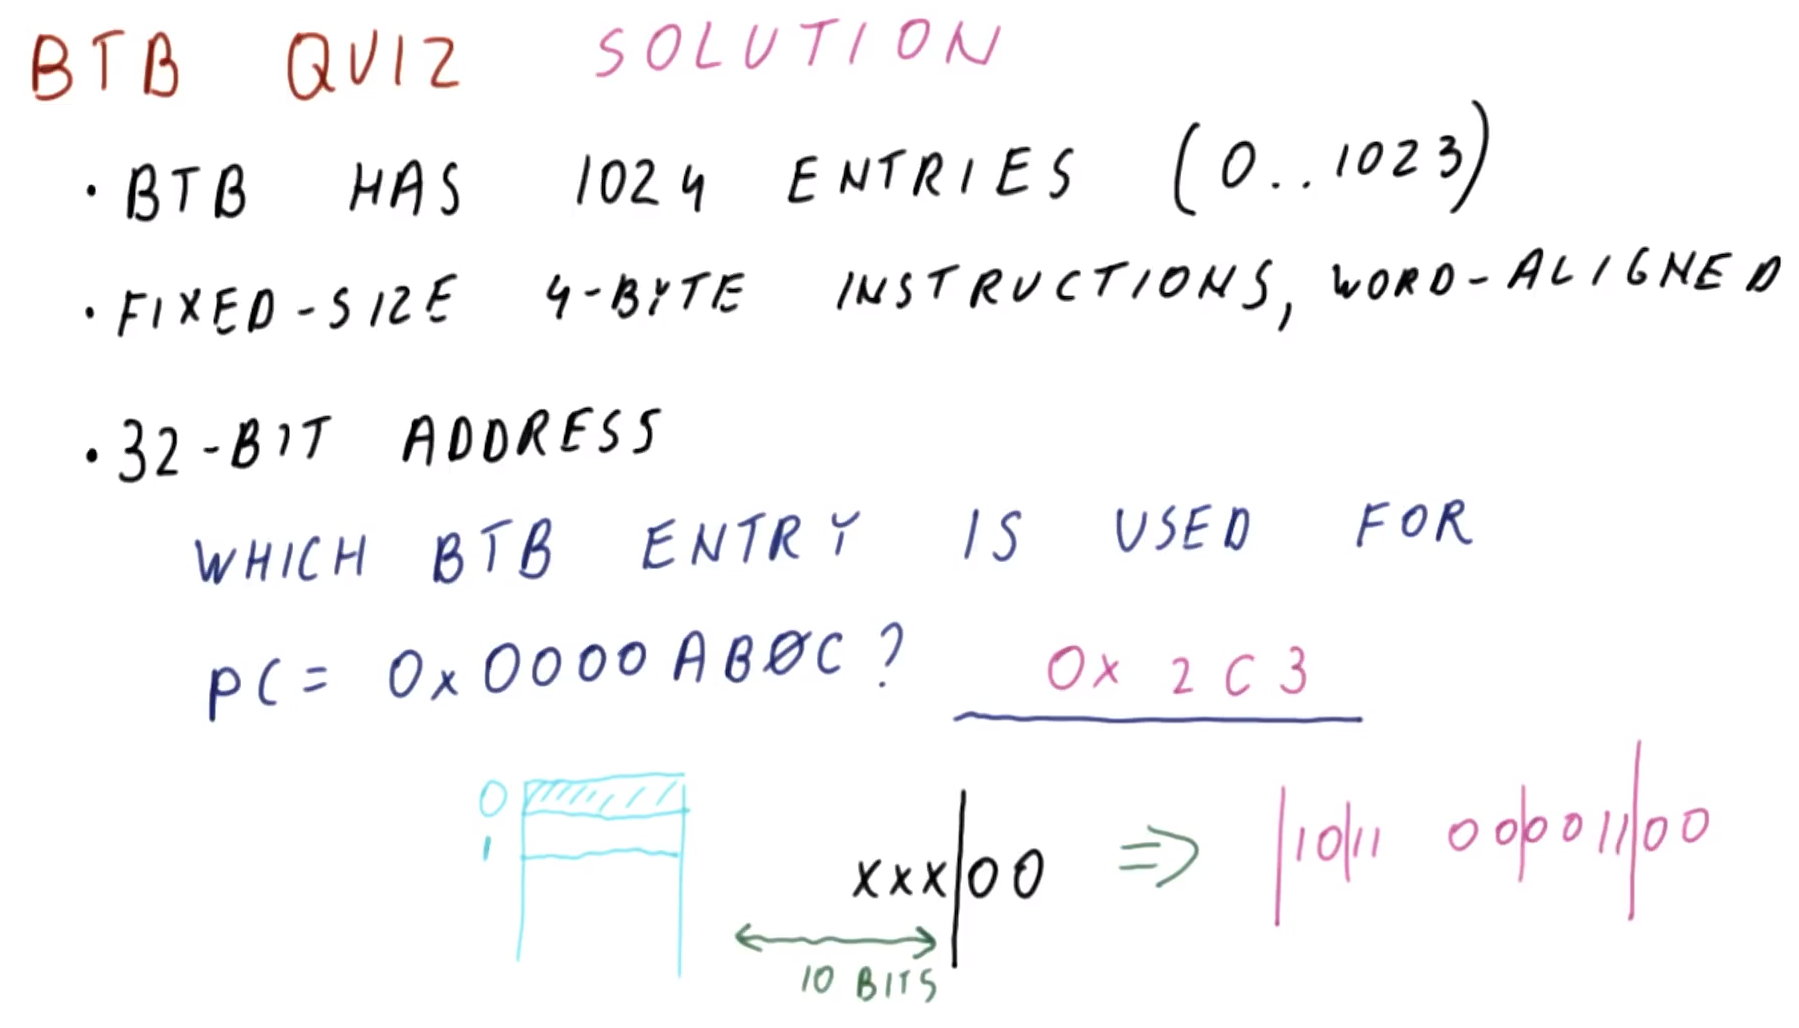 BTB QUIZ SOLUTION
· BTB HAS 1024 ENTRIES (0..1023)
· FIXED-SIZE 4-BYTE INSTRUCTIONS, WORD-ALIGNED
· 32-BIT ADDRESS
WHICH BTB ENTRY IS USED FOR
PC= 0x0000AB0C? 0x 2C3
0
1
xxx|00 ⇒ |10|11 00|0011|00
10 BITS